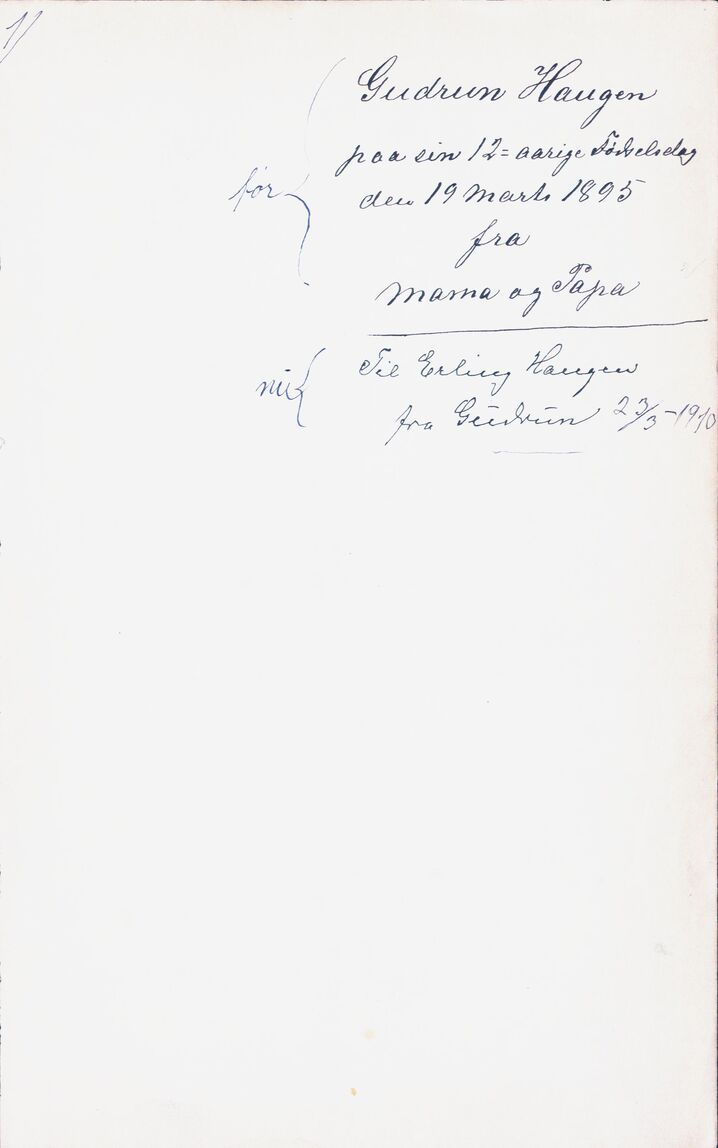 1/
Gudrun Haugen
paa sin 12=aarige Fødselsdag
før
den 19 Marts 1895
fra
Mama og Papa
Til Erling Haugen
nu
fra Gudrun 23/3-1910